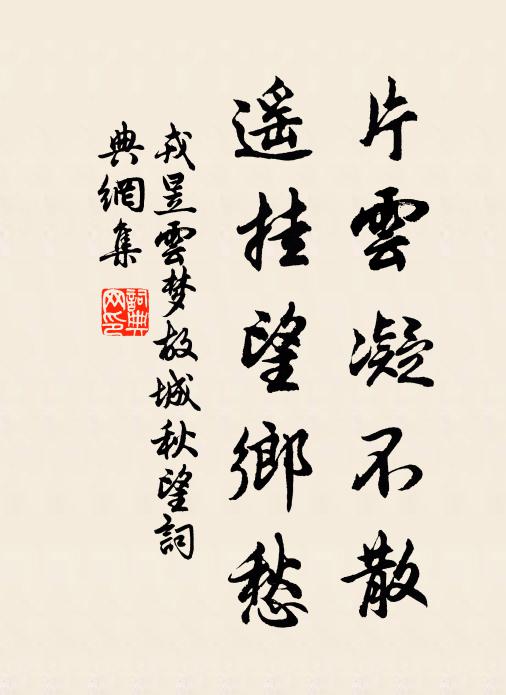 片雲凝不散
遥挂望鄉愁
戎昱雲梦故城秋望詞
典網集
詞典
网印